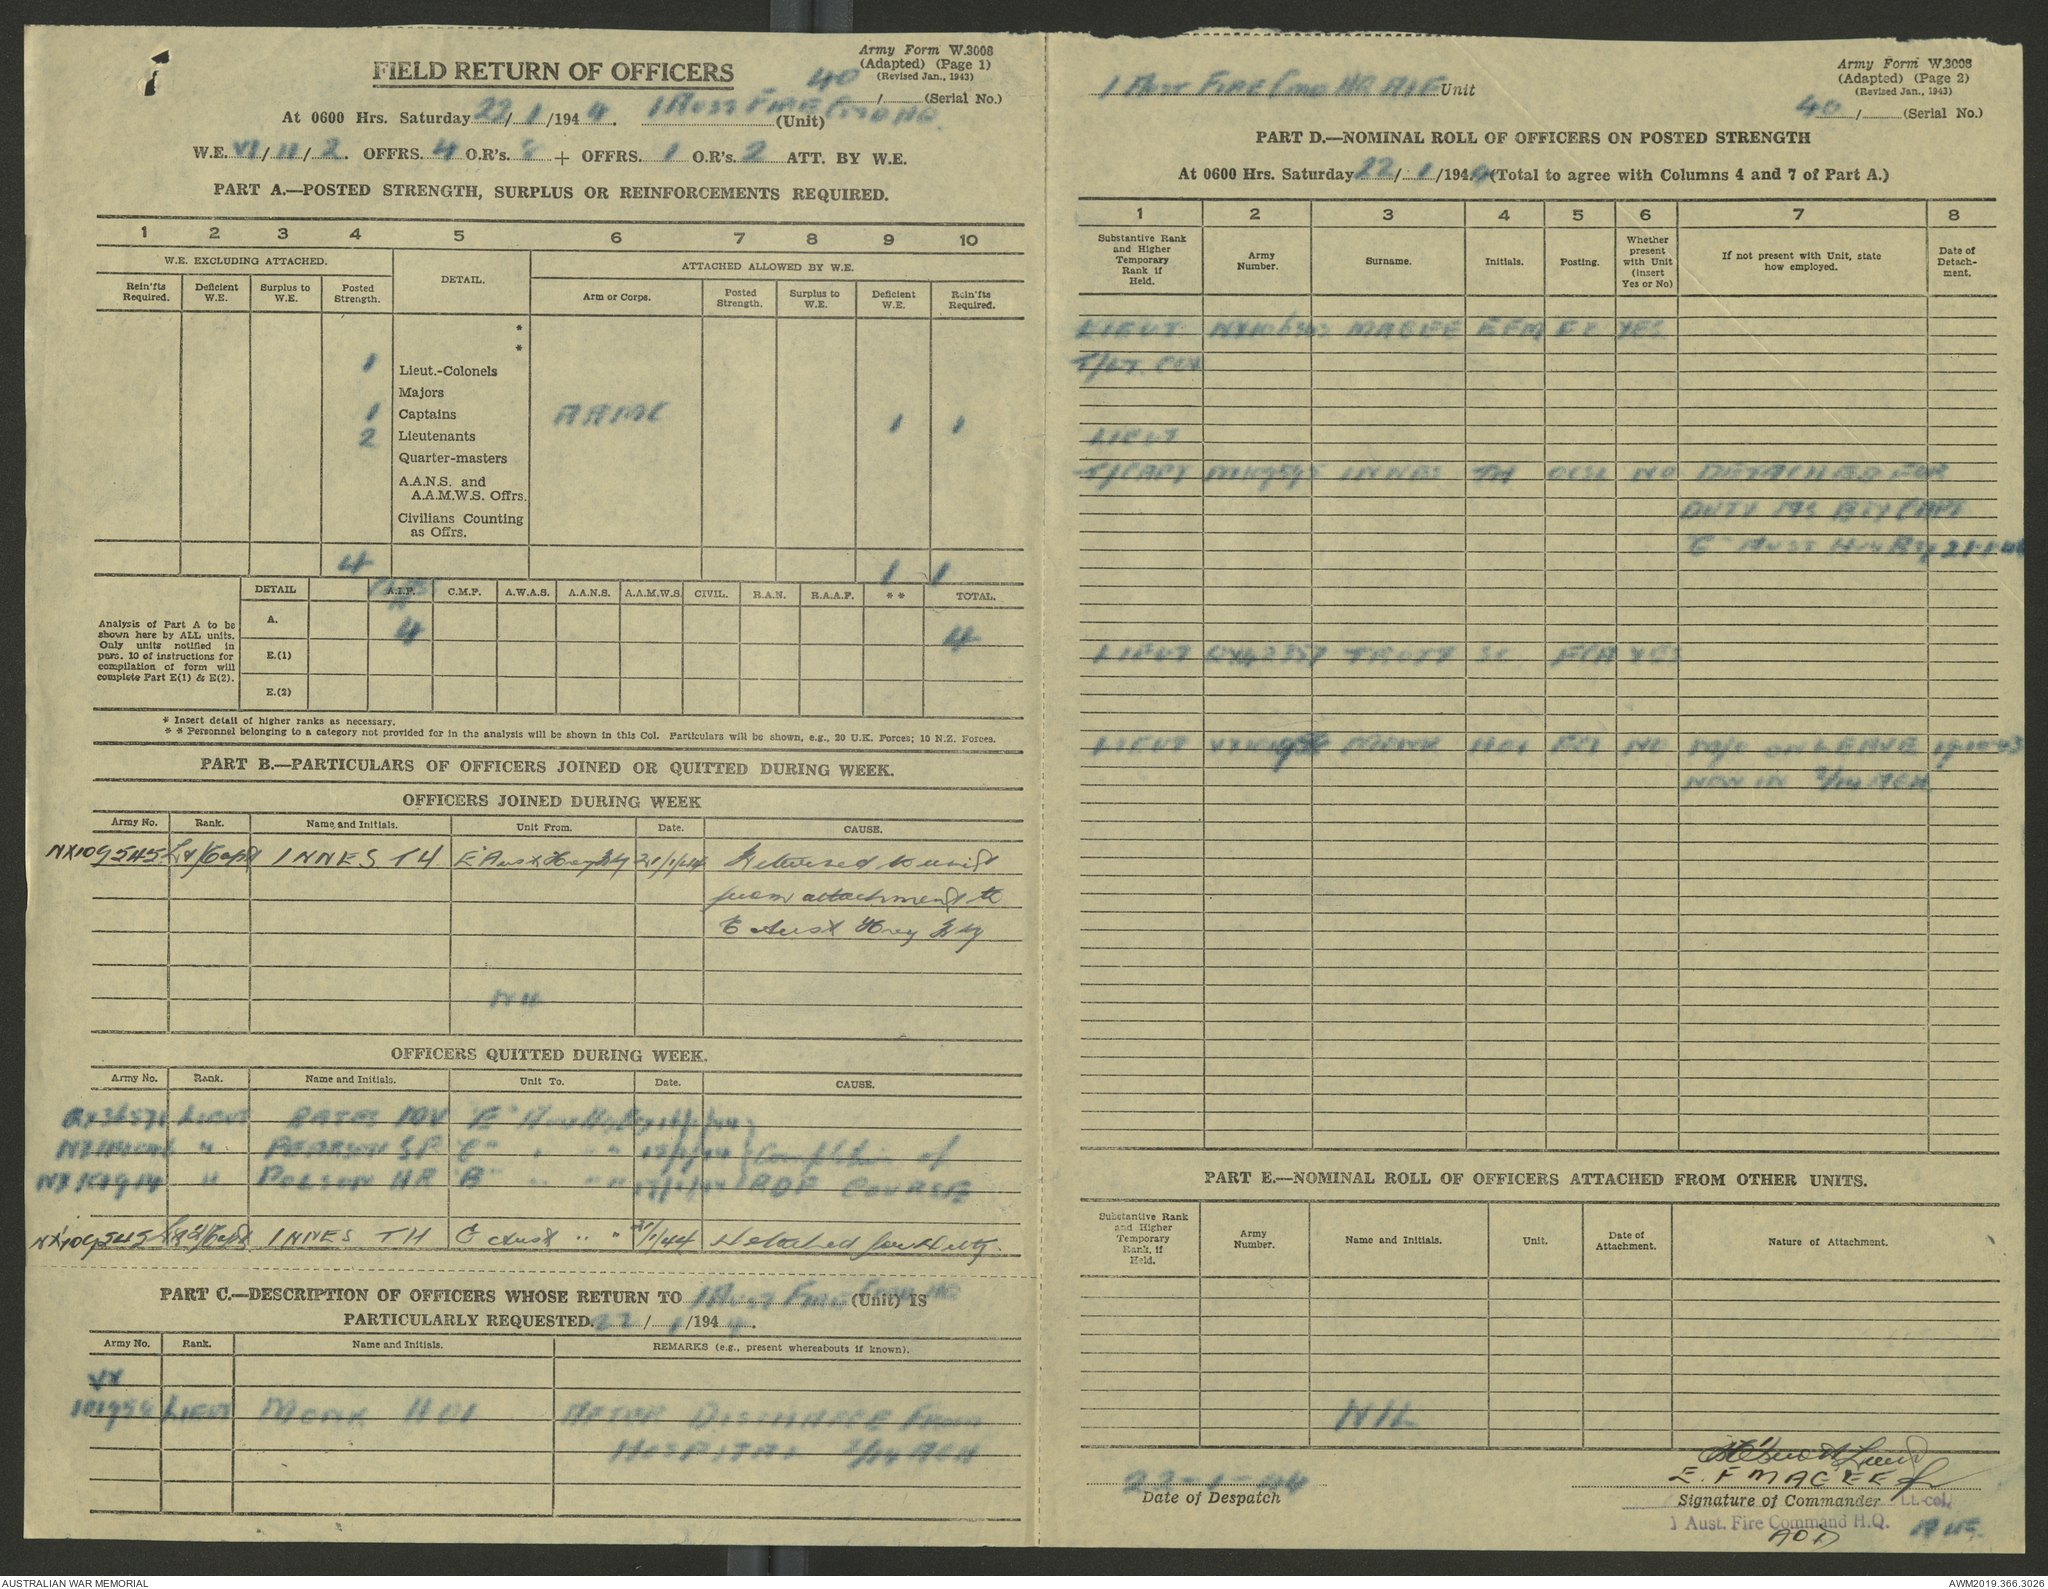 Army Form W.3008
(Adapted) (Page 1)
(Revised Jan., 1943)
FIELD RETURN OF OFFICERS
40 / (Serial No.)
At 0600 Hrs. Saturday 22/1/1944. 1 Aust Fire Cmd HQ (Unit)
W.E. VI/11/2. OFFRS. 4 O.R's. 8 + OFFRS. 1 O.R's. 2 ATT. BY W.E.
PART A.—POSTED STRENGTH, SURPLUS OR REINFORCEMENTS REQUIRED.
1 2 3 4 5 6 7 8 9 10
W.E. EXCLUDING ATTACHED. DETAIL. ATTACHED ALLOWED BY W.E.
Rein'fts Required. Deficient W.E. Surplus to W.E. Posted Strength. Arm or Corps. Posted Strength. Surplus to W.E. Deficient W.E. Rein'fts Required.
*
*
1 Lieut.-Colonels
Majors
1 Captains AAMC 1 1
2 Lieutenants
Quarter-masters
A.A.N.S. and
A.A.M.W.S. Offrs.
Civilians Counting
as Offrs.
4 1 1
DETAIL A.I.F. C.M.F. A.W.A.S. A.A.N.S. A.A.M.W.S. CIVIL. R.A.N. R.A.A.F. * * TOTAL.
Analysis of Part A to be shown here by ALL units. Only units notified in pars. 10 of instructions for compilation of form will complete Part E(1) & E(2).
A. 4 4
E.(1)
E.(2)
* Insert detail of higher ranks as necessary.
* * Personnel belonging to a category not provided for in the analysis will be shown in this Col. Particulars will be shown, e.g., 20 U.K. Forces; 10 N.Z. Forces.
PART B.—PARTICULARS OF OFFICERS JOINED OR QUITTED DURING WEEK.
OFFICERS JOINED DURING WEEK
Army No. Rank. Name and Initials. Unit From. Date. CAUSE.
NX109545 Lt/Capt INNES TH E Aust Hvy Bty 21/1/44 Returned to unit
from attachment to
E Aust Hvy Bty
Nil
OFFICERS QUITTED DURING WEEK.
Army No. Rank. Name and Initials. Unit To. Date. CAUSE.
LIEUT BATES "E" Aust Hvy Bty
" PEARSON SP "C" " " " Completion of
" POLSON HR "B" " " " RDF COURSE
NX109545 Lt/Capt INNES TH C Aust " " 21/1/44 Detached for duty.
PART C.—DESCRIPTION OF OFFICERS WHOSE RETURN TO 1 Aust Fire Cmd HQ (Unit) IS
PARTICULARLY REQUESTED. 22/1/1944.
Army No. Rank. Name and Initials. REMARKS (e.g., present whereabouts if known).
VX
101956 LIEUT MONK HOI AFTER DISCHARGE FROM
HOSPITAL 2/14 AGH
Army Form W.3008
(Adapted) (Page 2)
(Revised Jan., 1943)
1 Aust Fire Cmd HQ AIF Unit
40 / (Serial No.)
PART D.—NOMINAL ROLL OF OFFICERS ON POSTED STRENGTH
At 0600 Hrs. Saturday 22/1/1944 (Total to agree with Columns 4 and 7 of Part A.)
1 2 3 4 5 6 7 8
Substantive Rank and Higher Temporary Rank if Held. Army Number. Surname. Initials. Posting. Whether present with Unit (insert Yes or No) If not present with Unit, state how employed. Date of Detachment.
LIEUT MAGEE EFM YES
T/LT. COL
LIEUT
T/CAPT INNES TH NO DETACHED FOR
DUTY AS BTY CAPT
"C" AUST Hvy Bty 21-1-44
LIEUT TROTT YES
LIEUT MONK HOI NO ON LEAVE
NOW IN 2/14 AGH
PART E.—NOMINAL ROLL OF OFFICERS ATTACHED FROM OTHER UNITS.
Substantive Rank and Higher Temporary Rank, if Held. Army Number. Name and Initials. Unit. Date of Attachment. Nature of Attachment.
NIL
22-1-44
Date of Despatch
E. F MAGEE
Signature of Commander Lt.-col.
1 Aust. Fire Command H.Q. AIF.
AUSTRALIAN WAR MEMORIAL
AWM2019.366.3026